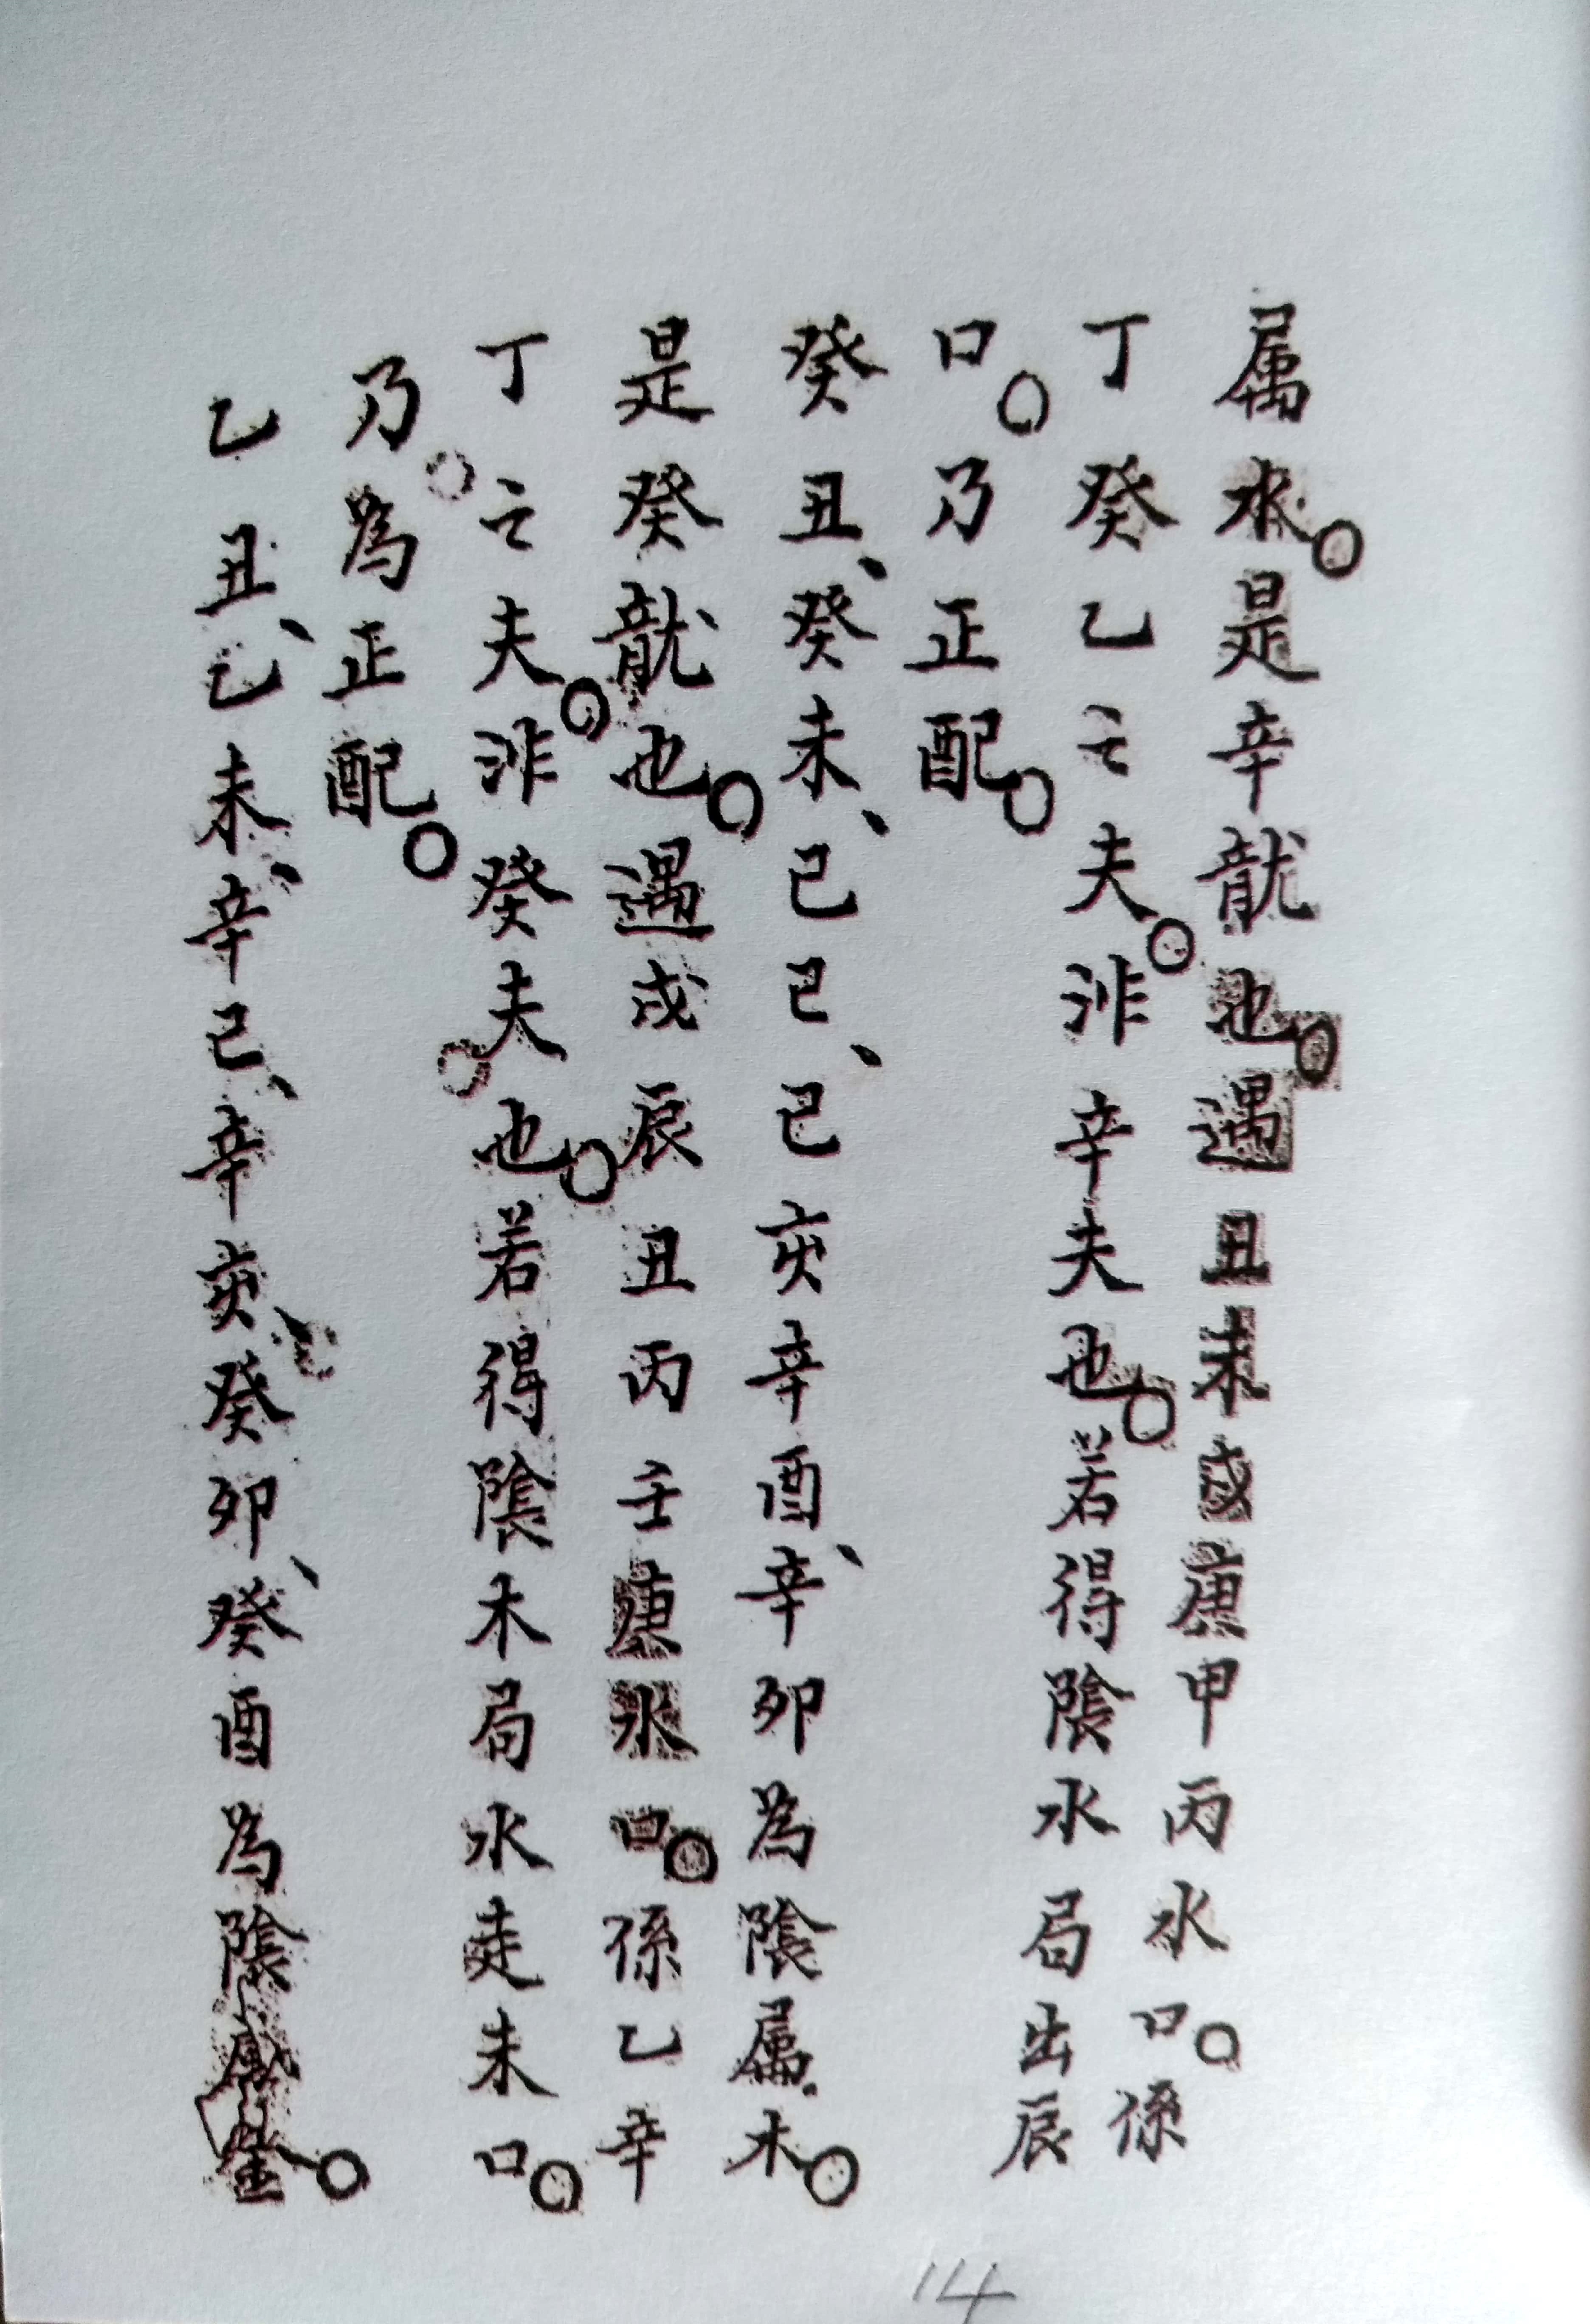 属水。是辛龍也。遇丑未戌庚甲丙水口。係
丁癸乙之夫。非辛夫也。若得陰水局出辰
口。乃正配。
癸丑、癸未、己巳、己亥辛酉、辛卯為陰属木。
是癸龍也。遇戌辰丑丙壬庚水口。係乙辛
丁之夫。非癸夫也。若得陰木局水走未口。
乃為正配。
乙丑、乙未、辛巳、辛亥、癸卯、癸酉為陰属金。
14